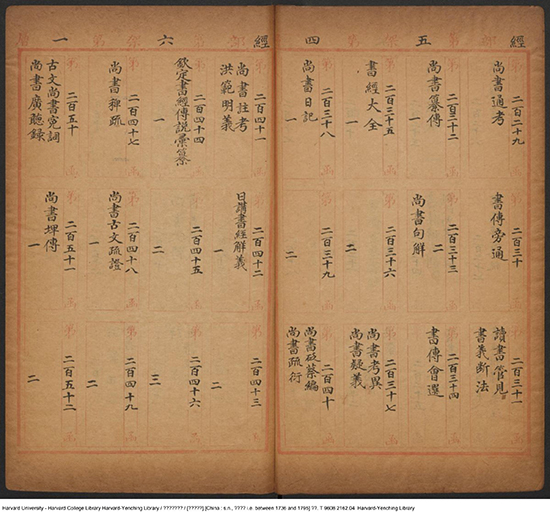 經部第五架第四
第二百二十九函
尚書通考
第二百三十函
書傳旁通
第二百三十一函
讀書管見
書義斷法
第二百三十二函
尚書纂傳 一
第二百三十三函
二
尚書句解
第二百三十四函
書傳會選
第二百三十五函
書經大全 一
第二百三十六函
二
第二百三十七函
尚書考異
尚書疑義
第二百三十八函
尚書日記 一
第二百三十九函
二
第二百四十函
尚書砭蔡編
尚書疏衍
經部第六架第一
第二百四十一函
尚書註考
洪範明義
第二百四十二函
日講書經解義 一
第二百四十三函
二
第二百四十四函
欽定書經傳説彙纂 一
第二百四十五函
二
第二百四十六函
三
第二百四十七函
尚書稗疏
第二百四十八函
尚書古文疏證 一
第二百四十九函
二
第二百五十函
古文尚書寃詞
尚書廣聽録
第二百五十一函
尚書埤傳 一
第二百五十二函
二
Harvard University - Harvard College Library Harvard-Yenching Library / ??????? / [?????] [China : s.n., ???? i.e. between 1736 and 1795] ??. T 9608 2162.04 Harvard-Yenching Library